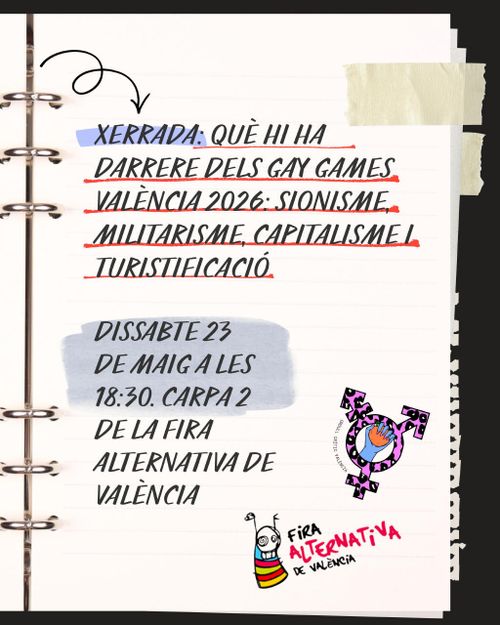 XERRADA: QUÈ HI HA
DARRERE DELS GAY GAMES
VALÈNCIA 2026: SIONISME,
MILITARISME, CAPITALISME I
TURISTIFICACIÓ
DISSABTE 23
DE MAIG A LES
18:30. CARPA 2
DE LA FIRA
ALTERNATIVA DE
VALÈNCIA
FIRA
ALTERNATIVA
DE VALÈNCIA